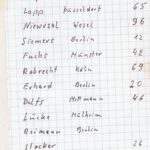 Lapp Düsseldorf 65
Niewerzol Wesel 96
Siemers Berlin 12
Fuchs Münster 48
Robrecht Köln 69
Erhard Berlin 20
Delfs Mettmann 46
Lücke Mülheim
Reimann Berlin
Stocker 26